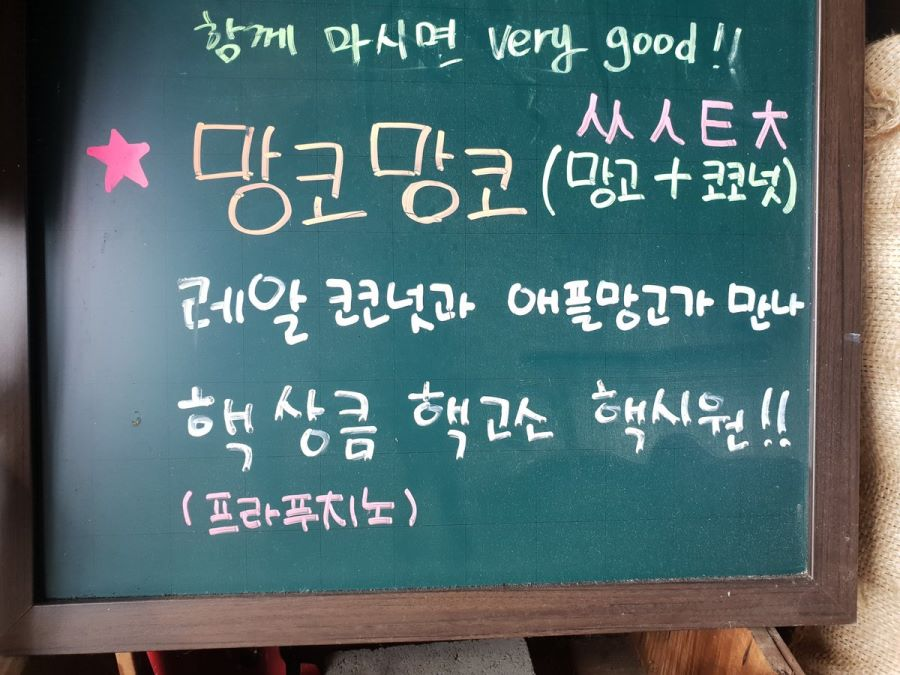 함께 마시면 very good!!
ㅆㅅㅌㅊ
★ 망코망코 (망고+코코넛)
레알 코코넛과 애플망고가 만나
핵상큼 핵고소 핵시원!!
(프라푸치노)